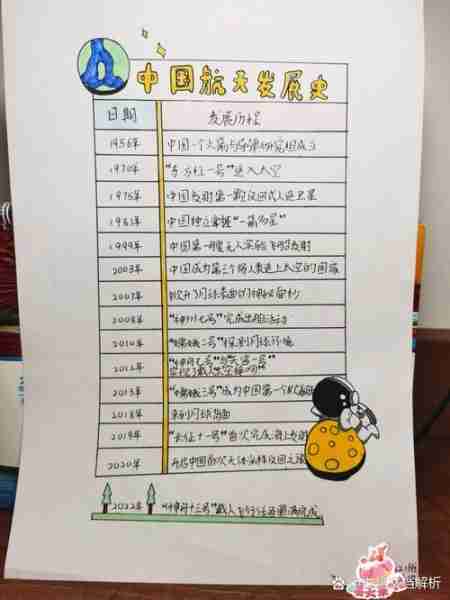 中国航天发展史
日期 发展历程
1956年 中国第一个火箭与导弹研究组成立
1970年 "东方红一号"进入太空
1975年 中国发射第一颗返回式人造卫星
1981年 中国独立掌握"一箭多星"
1999年 中国第一艘无人实验飞船发射
2003年 中国成为第三个将人类送上太空的国家
2007年 月球表面的神秘面纱
2008年 "神州七号"完成出舱活动
2010年 "嫦娥二号"探测月球环境
2012年 "神舟九号"与"天宫一号"
2013年 "嫦娥三号"成为中国第一个
2018年 来到月球背面
2019年 "长征十一号"首次完成海上发射
2020年 开启中国首次天体采样返回之旅
2022年 "神舟十三号"载人飞行任务圆满完成